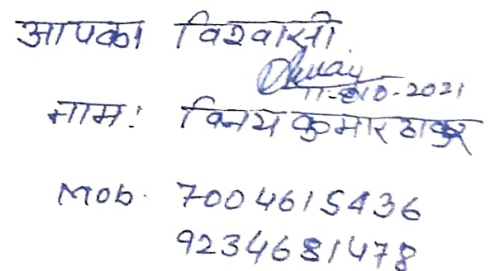 आपका विश्वासी
11-10-2021
नाम: विनय कुमार ठाकुर
Mob. 7004615436
9234681478